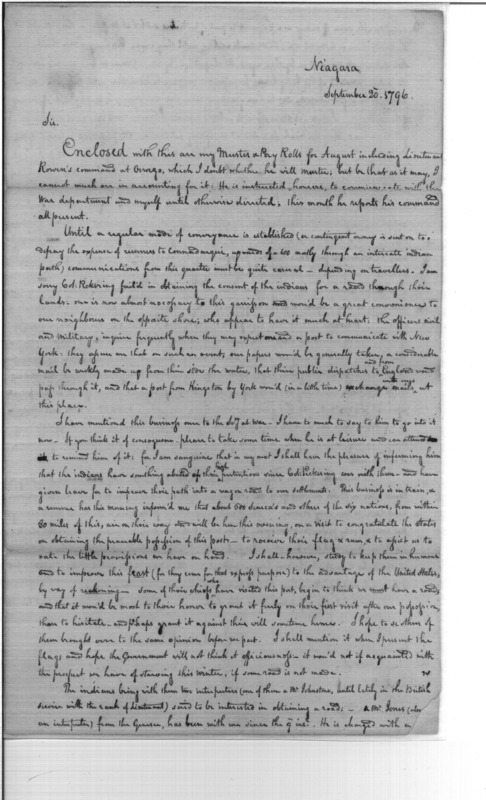 Niagara
September 20. 1796.
Sir.
Enclosed with this are my Muster & Pay Rolls for August including Lieutenant
command at Oswego, which I doubt whether he will muster, but be that as it may, I
cannot much in accounting for it: He is instructed, however, to communicate with the
War department and myself until otherwise directed. This month he reports his command
all present.
Until a regular mode of conveyance is established (or contingent money is sent on to
defray the expence of runners to upwards of a 100 mostly through an intricate indian
path) communications from this quarter must be quite casual — depending on travellers. I am
sorry Col. Pickering fail'd in obtaining the consent of the indians for a road through their
lands: one is now almost necessary to this garrison and wou'd be a great convenience to
our neighbours on the opposite shore; who appear to have it much at heart. The officers civil
and military, inquire frequently when they may expect a post to communicate with New
York: they assure me that on such an event, our papers wou'd be generally taken, a considerable
mail be weekly made up from their side the water, that their public dispatches to and from England wou'd
pass through it, and that a post from Kingston by York wou'd (in a little time) exchange mails at
this place.
I have mention'd this business once to the Secy at War — I have to much to say to him to go into it
now — If you think it of consequence please to take some time when he is at leisure and can attend
to remind him of it: for I am sanguine that in my next I shall have the pleasure of informing him
that the indians have something abated of their pretentions since Col. Pickering was with them — and have
given leave for to improve their path into a wagon road to our settlements. This business is in train, as
a runner has this morning inform'd me that about 500 Seneca's and others of the six nations, from within
60 miles of this, are on their way & will be here this evening, on a visit to congratulate the States
on obtaining the peaceable possession of this post — to receive their flag & rum, & to assist us to
eat the little provisions we have on hand. I shall however, study to keep them in humour
and to improve this feast (for they come for that express purpose) to the advantage of the United States,
by way of — Some of their chiefs who have visited this post, begin to think we must have a road,
and that it wou'd be most to their honor to grant it freely on their first visit after our possession,
than to hesitate and perhaps grant it against their will sometime hence. I hope to others of
them brought over to the same opinion before we part. I shall mention it when I present the
flag, and hope the Government will not think it officiousness — it wou'd not if acquainted with
the prospect we have of starving this winter, if some road is not made.
The indians bring with them two interpreters (one of them a Mr Johnston, until lately in the British
service with the rank of Lieutenant) said to be interested in obtaining a road: — a Mr Jones (also
an interpreter) from the has been with me since the ins. He is charged with a